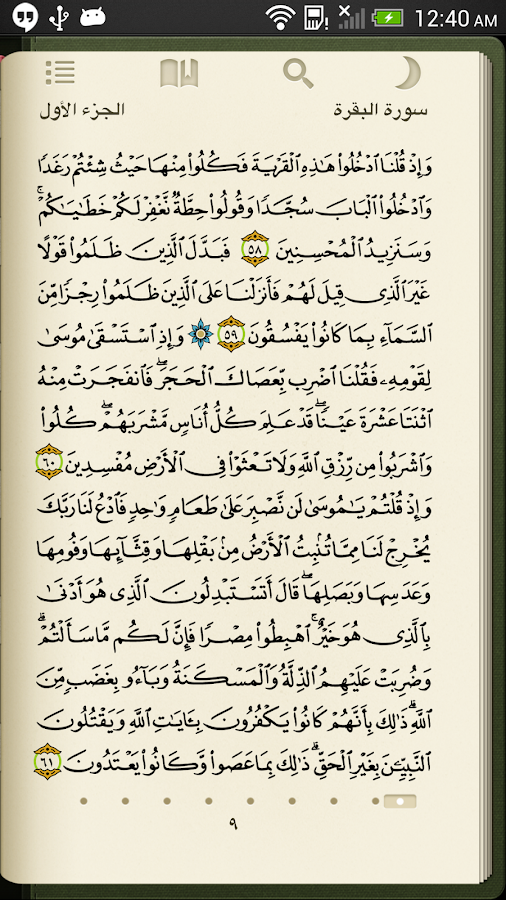 12:40 AM
سورة البقرة الجزء الأول
وَإِذْ قُلْنَا ٱدْخُلُوا۟ هَـٰذِهِ ٱلْقَرْيَةَ فَكُلُوا۟ مِنْهَا حَيْثُ شِئْتُمْ رَغَدًا
وَٱدْخُلُوا۟ ٱلْبَابَ سُجَّدًا وَقُولُوا۟ حِطَّةٌ نَّغْفِرْ لَكُمْ خَطَـٰيَـٰكُمْ ۚ
وَسَنَزِيدُ ٱلْمُحْسِنِينَ ٥٨ فَبَدَّلَ ٱلَّذِينَ ظَلَمُوا۟ قَوْلًا
غَيْرَ ٱلَّذِى قِيلَ لَهُمْ فَأَنزَلْنَا عَلَى ٱلَّذِينَ ظَلَمُوا۟ رِجْزًا مِّنَ
ٱلسَّمَآءِ بِمَا كَانُوا۟ يَفْسُقُونَ ٥٩ وَإِذِ ٱسْتَسْقَىٰ مُوسَىٰ
لِقَوْمِهِۦ فَقُلْنَا ٱضْرِب بِّعَصَاكَ ٱلْحَجَرَ ۖ فَٱنفَجَرَتْ مِنْهُ
ٱثْنَتَا عَشْرَةَ عَيْنًا ۖ قَدْ عَلِمَ كُلُّ أُنَاسٍ مَّشْرَبَهُمْ ۖ كُلُوا۟
وَٱشْرَبُوا۟ مِن رِّزْقِ ٱللَّهِ وَلَا تَعْثَوْا۟ فِى ٱلْأَرْضِ مُفْسِدِينَ ٦٠
وَإِذْ قُلْتُمْ يَـٰمُوسَىٰ لَن نَّصْبِرَ عَلَىٰ طَعَامٍ وَٰحِدٍ فَٱدْعُ لَنَا رَبَّكَ
يُخْرِجْ لَنَا مِمَّا تُنۢبِتُ ٱلْأَرْضُ مِنۢ بَقْلِهَا وَقِثَّآئِهَا وَفُومِهَا
وَعَدَسِهَا وَبَصَلِهَا ۖ قَالَ أَتَسْتَبْدِلُونَ ٱلَّذِى هُوَ أَدْنَىٰ
بِٱلَّذِى هُوَ خَيْرٌ ۚ ٱهْبِطُوا۟ مِصْرًا فَإِنَّ لَكُم مَّا سَأَلْتُمْ ۗ
وَضُرِبَتْ عَلَيْهِمُ ٱلذِّلَّةُ وَٱلْمَسْكَنَةُ وَبَآءُو بِغَضَبٍ مِّنَ
ٱللَّهِ ۗ ذَٰلِكَ بِأَنَّهُمْ كَانُوا۟ يَكْفُرُونَ بِـَٔايَـٰتِ ٱللَّهِ وَيَقْتُلُونَ
ٱلنَّبِيِّـۧنَ بِغَيْرِ ٱلْحَقِّ ۗ ذَٰلِكَ بِمَا عَصَوا۟ وَّكَانُوا۟ يَعْتَدُونَ ٦١
٩